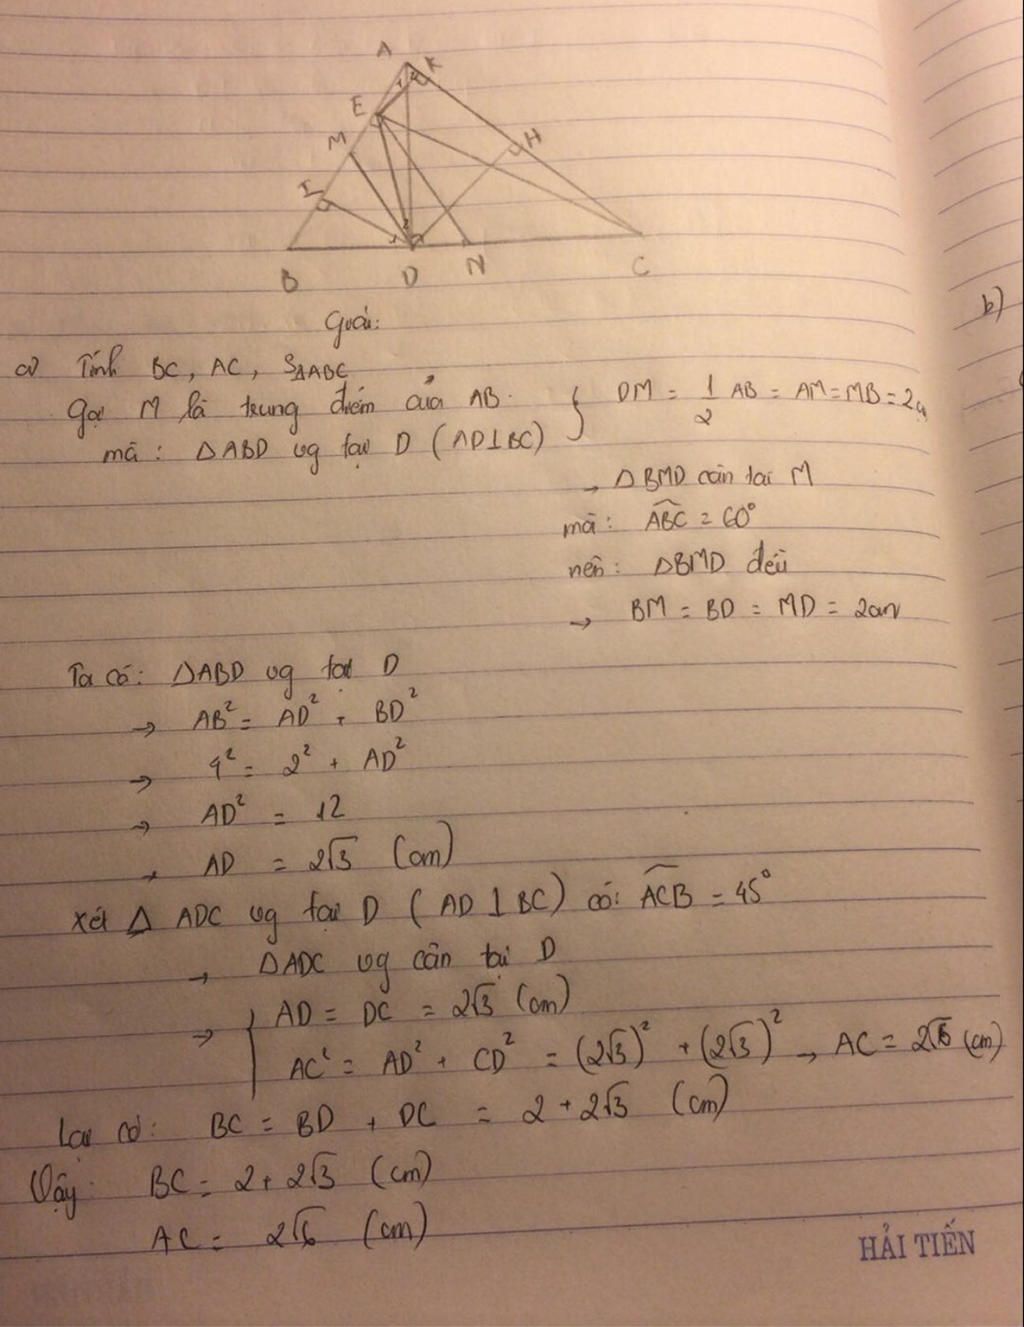 A
K
E
M
H
I
1
2
1
B
D
N
C
Giải:
b)
a) Tính BC, AC, SΔABC
Gọi M là trung điểm của AB.
mà: ΔABD vg tại D (AD⊥BC) } DM = 1/2 AB = AM = MB = 2cm
→ ΔBMD cân tại M
mà: ABC = 60°
nên: ΔBMD đều
→ BM = BD = MD = 2cm
Ta có: ΔABD vg tại D
→ AB² = AD² + BD²
→ 4² = 2² + AD²
→ AD² = 12
→ AD = 2√3 (cm)
Xét Δ ADC vg tại D ( AD ⊥ BC) có: ACB = 45°
→ ΔADC vg cân tại D
→ { AD = DC = 2√3 (cm)
AC² = AD² + CD² = (2√3)² + (2√3)² → AC = 2√6 (cm)
Lại có: BC = BD + DC = 2 + 2√3 (cm)
Vậy: BC = 2 + 2√3 (cm)
AC = 2√6 (cm)
HẢI TIẾN